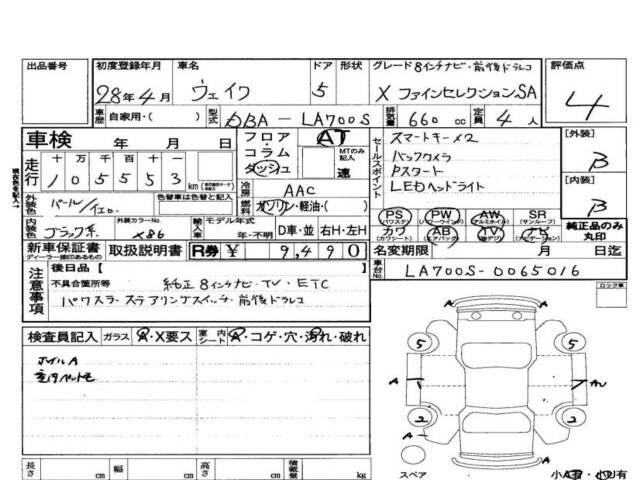 出品番号
初度登録年月
28年4月
車名
ウェイク
ドア
5
形状
グレード 8インチナビ・前後ドラレコ
X ファインセレクションSA
評価点
4
車歴 自家用・( )
型式 DBA-LA700S
排気量 660 cc
定員 4 人
車検 年 月 日
走行 十 万 千 百 十 一
1 0 5 5 5 3 km
フロア・コラム ダッシュ
AT
MTのみ記入
速
セールスポイント
スマートキー×2
バックカメラ
Pスタート
LEDヘッドライト
[外装]
B
[内装]
B
外装色 パール/イエロ.
色替車は色替と記入
冷房 AAC
燃料 ガソリン・軽油・( )
内装色 ブラック系
外装カラーNo.
X86
輸入車
モデル年式
年・不明
D車・並 右H・左H
PS (パワステ) PW (パワーウインド) AW (アルミホイル) SR (サンルーフ)
カワ (カワシート) AB (エアバック) TV ナビ (ナビゲーション)
純正品のみ丸印
新車保証書 取扱説明書 R券 ¥ 9,490
ディーラー捺印あるもの
名変期限 月 日迄
車台No. LA700S-0065016
注意事項
後日品 [ ]
不具合箇所等 純正8インチナビ・TV・ETC
パワスラ・ステアリングスイッチ・前後ドラレコ
ロック車
検査員記入 ガラス A・X要ス 室内シート A・コゲ・穴・汚れ・破れ
ホイルA
5
5
A
A
2
2
A
スペア
長さ cm 幅 cm 高さ cm 積載量 kg